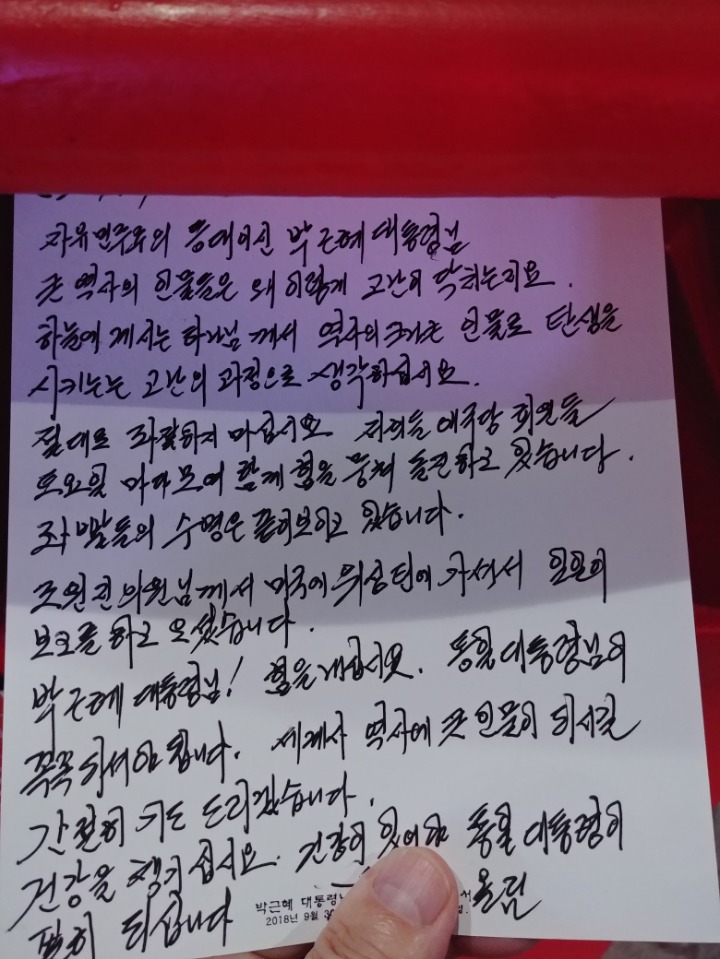 자유민주주의 등대이신 박근혜 대통령님
큰 역사의 인물들은 왜 이렇게 고난이 닥치는지요.
하늘에 계시는 하나님께서 역사의 크나큰 인물로 탄생을
시키는 고난의 과정으로 생각하십시요.
절대로 좌절하지 마십시요 저희들 애국당 회원들
토요일 마다 모여 함께 힘을 뭉쳐 돌진하고 있습니다.
좌빨들의 수명은 끝이보이고 있습니다.
조원진의원님께서 미국에 워싱턴에 가셔서
하고 오셨습니다.
박근혜 대통령님! 힘을내십시오. 통일대통령님이
꼭꼭 되셔야 됩니다. 세계사 역사에 큰 인물이 되시길
간절히 기도 드리겠습니다.
건강을 챙기십시요. 건강이 있어야 통일대통령이
필히 되십니다 올림
박근혜 대통령
2018년 9월